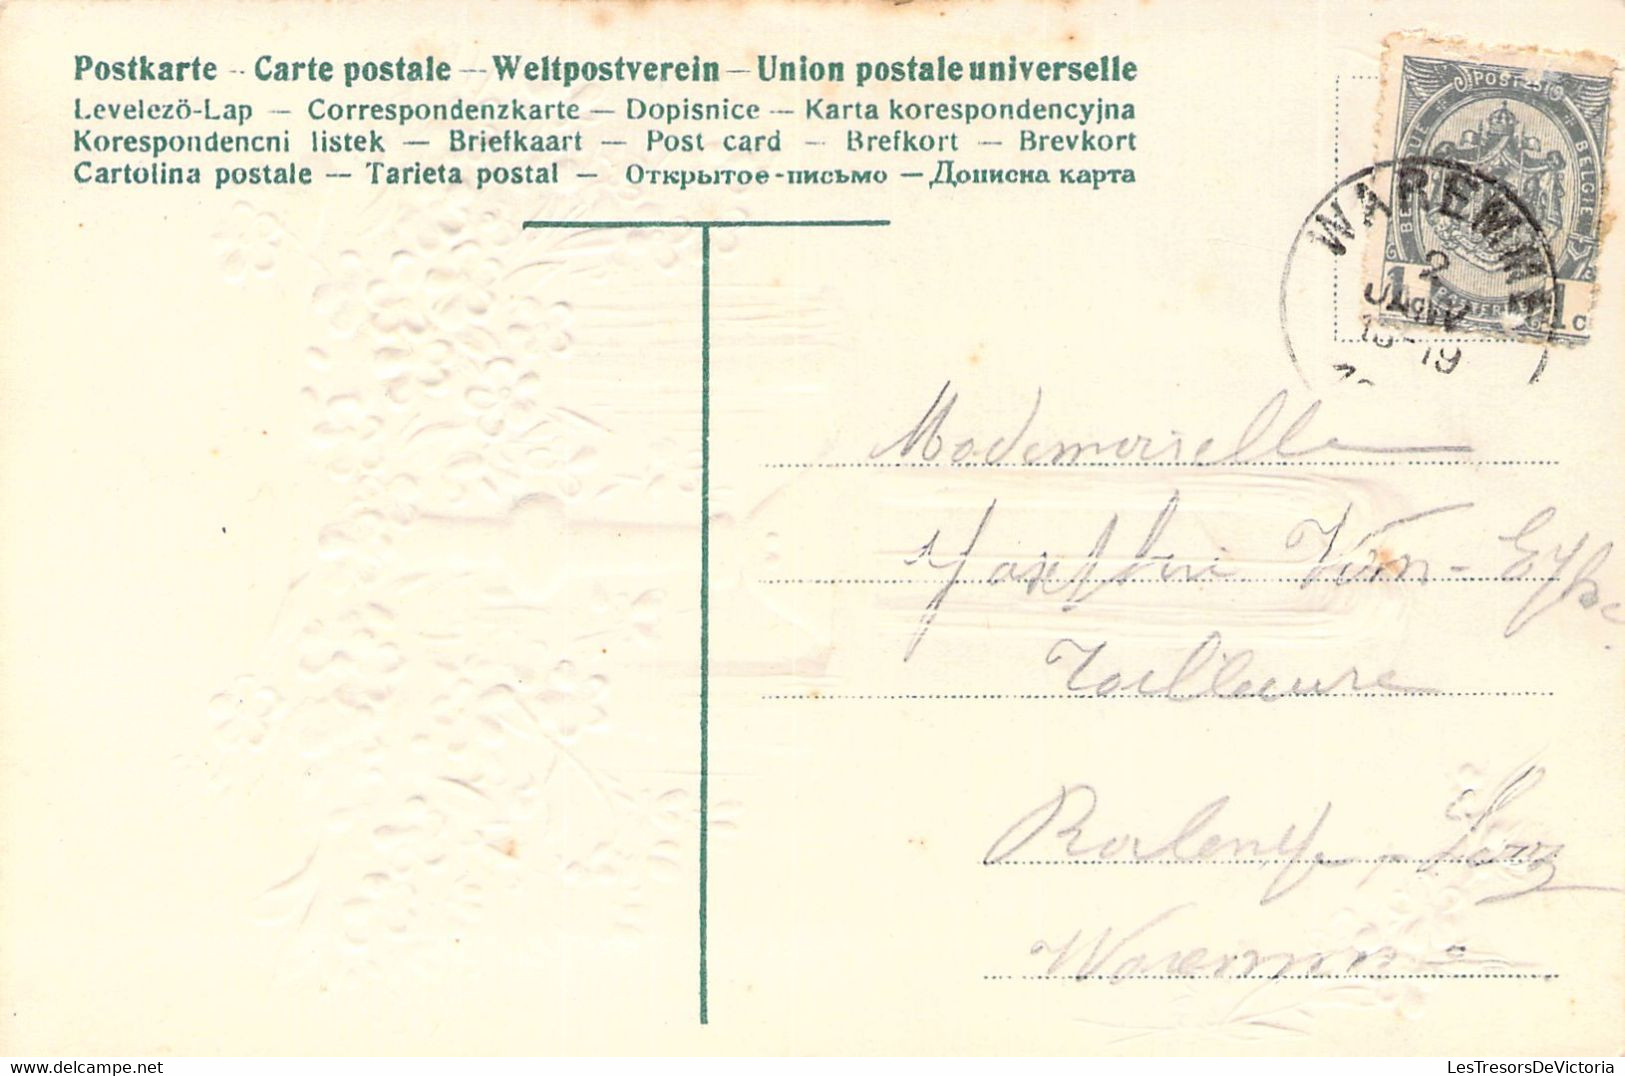 Postkarte -- Carte postale -- Weltpostverein -- Union postale universelle
Levelezö-Lap — Correspondenzkarte — Dopisnice — Karta korespondencyjna
Korespondencni listek — Briefkaart — Post card — Brefkort — Brevkort
Cartolina postale — Tarieta postal — Открытое-письмо — Дописна карта
POST
BELGIE
1 1c
WAREMME
2
JANV
19
Mademoiselle
Van-
Tailleuse
Waremme
LesTresorsDeVictoria